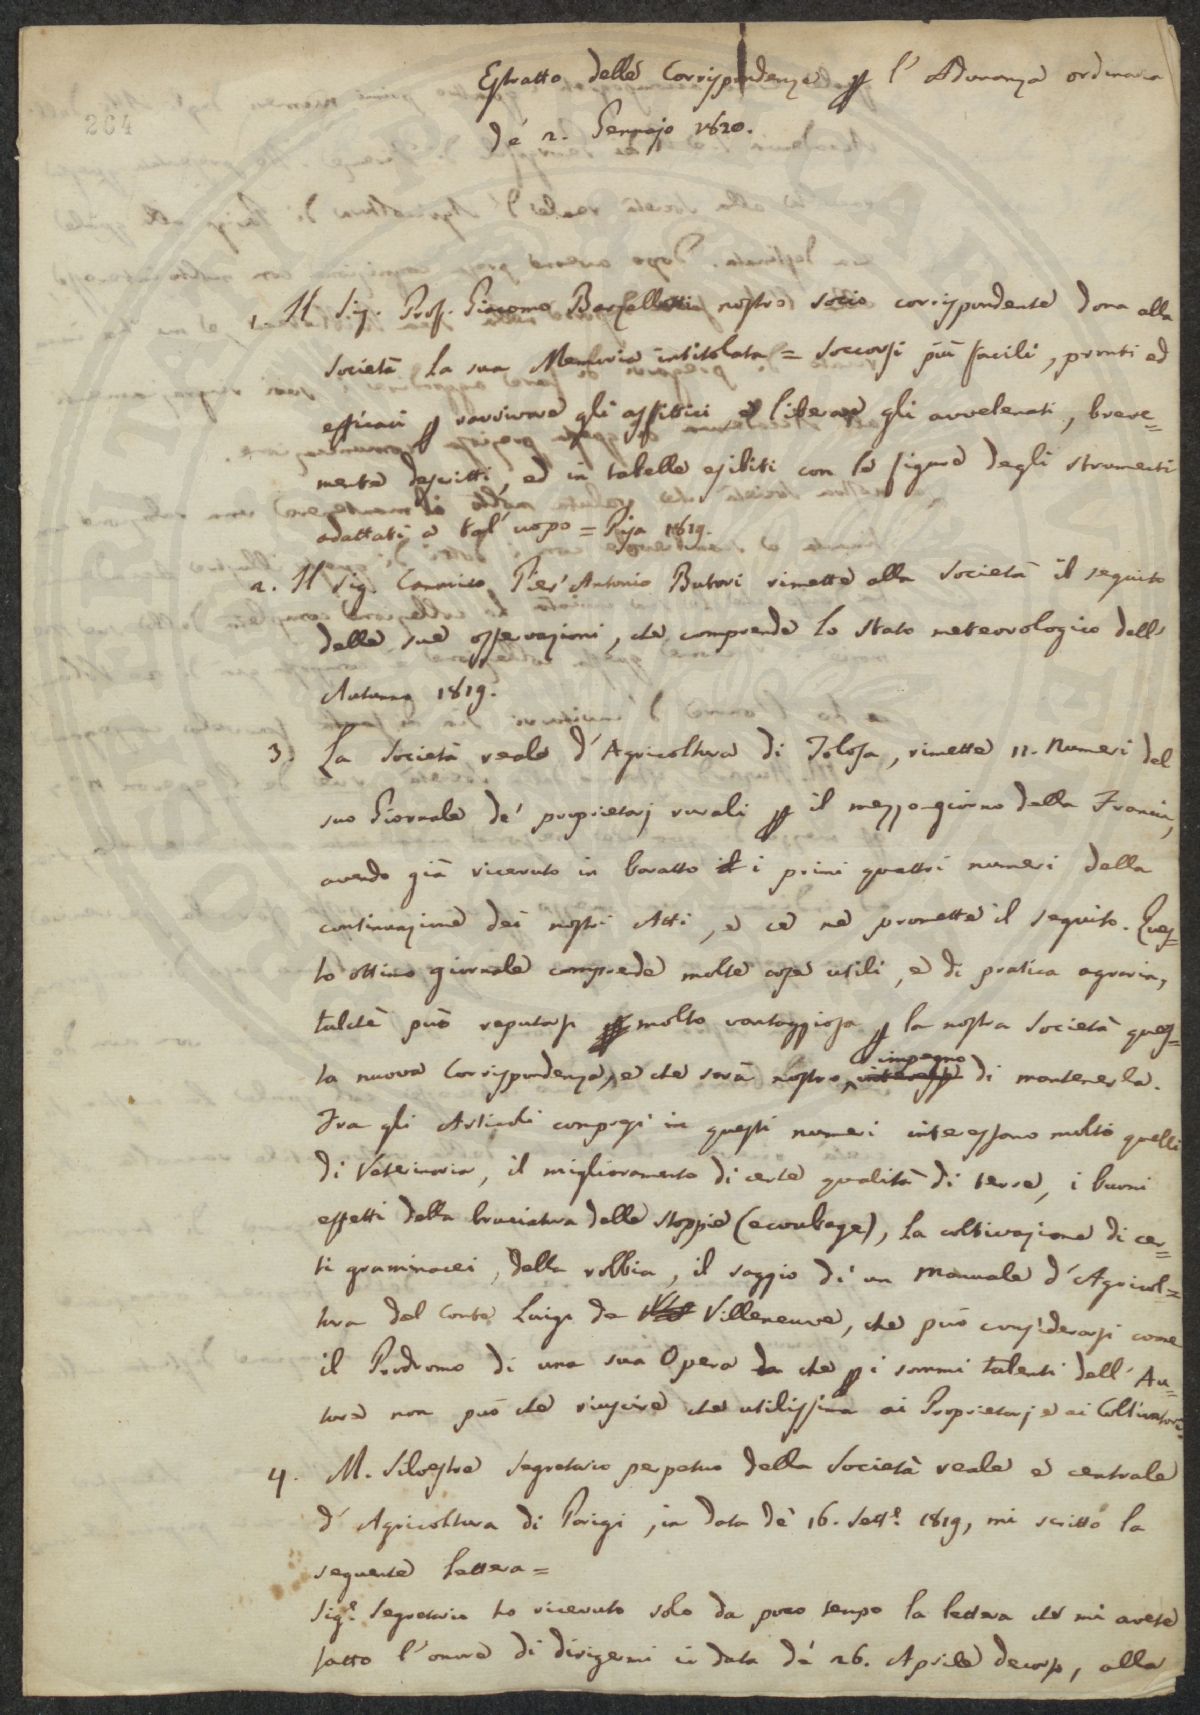 Estratto della Corrispondenza p l'Adunanza ordinaria
de' 2. Gennajo 1820.
264
1. Il Sig. Prof. Giacomo Barzellotti nostro socio corrispondente dona alla
Società la sua Memoria intitolata = Soccorsi più facili, pronti ed
efficaci p ravvivare gli asfittici e liberare gli avvelenati, breve=
mente descritti, ed in tabelle esibiti con le figure degli strumenti
adattati a tal'uopo = Pisa 1819.
2. Il Sig. Canonico Pier'Antonio Butori rimette alla Società il seguito
delle sue osservazioni, che comprende lo stato meteorologico dell'
Autunno 1819.
3. La Società reale d'Agricoltura di Tolosa, rimette 11. Numeri del
suo Giornale de' proprietarj rurali p il mezzo-giorno della Francia,
avendo già ricevuto in baratto il i primi quattri numeri della
continuazione dei nostri Atti, e ce ne promette il seguito. Ques=
to ottimo giornale comprende molte cose utili, e di pratica agraria,
talchè può reputarsi p molto vantaggiosa p la nostra Società ques=
ta nuova Corrispondenza, e che sarà nostro interesse impegno di mantenerla.
Fra gli Articoli compresi in questi numeri interessano molto quelli
di Veterinaria, il miglioramento di certe qualità di terre, i buoni
effetti della bruciatura delle stoppie (ecoubage), la coltivazione di cer=
ti graminacei, della robbia, il saggio di un Manuale d'Agricol=
tura del Conte Luigi de Villeneuve, che può considerarsi come
il Prodromo di una sua Opera da che p i sommi talenti dell'Au=
tore non può che riuscire che utilissima ai Proprietarj e ai Coltivatori.
4. M. Silvestre Segretario perpetuo della Società reale e centrale
d'Agricoltura di Parigi, in data de' 16. Sett.e 1819, mi scritto la
seguente lettera =
Sig.e Segretario ho ricevuto solo da poco tempo la lettera che mi avete
fatto l'onore di dirigermi in data de' 26. Aprile decorso, alla